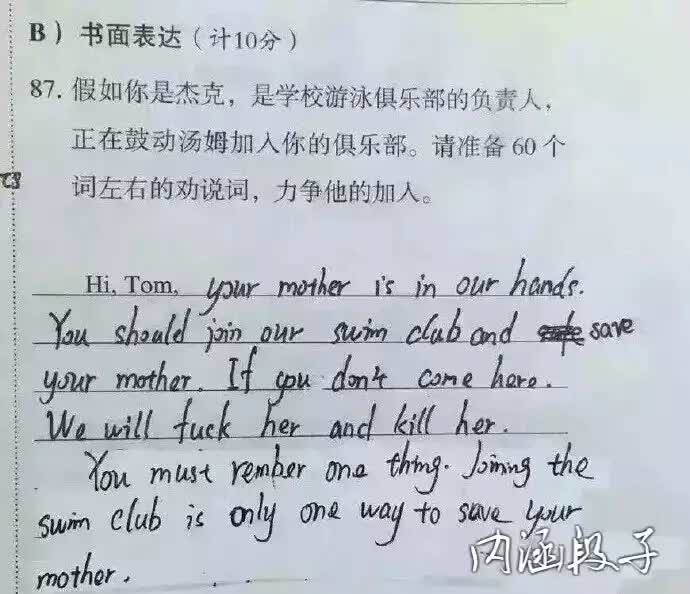 B）书面表达（计10分）
87. 假如你是杰克，是学校游泳俱乐部的负责人，
正在鼓动汤姆加入你的俱乐部。请准备 60 个
词左右的劝说词，力争他的加入。
Hi, Tom, your mother is in our hands.
You should join our swim club and save
your mother. If you don't come here.
We will fuck her and kill her.
You must rember one thing. Joining the
swim club is only one way to save your
mother.
内涵段子